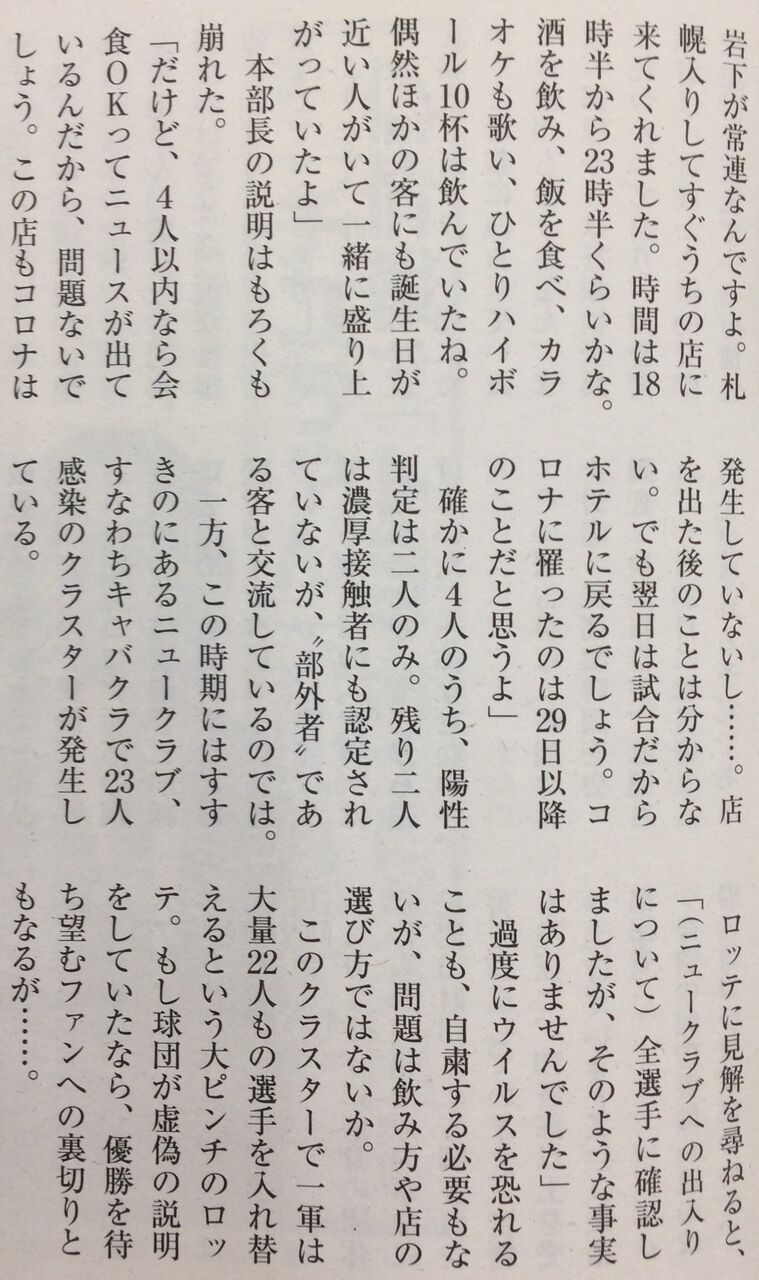 岩下が常連なんですよ。札
幌入りしてすぐうちの店に
来てくれました。時間は18
時半から23時半くらいかな。
酒を飲み、飯を食べ、カラ
オケも歌い、ひとりハイボ
ール10杯は飲んでいたね。
偶然ほかの客にも誕生日が
近い人がいて一緒に盛り上
がっていたよ」
　本部長の説明はもろくも
崩れた。
「だけど、4人以内なら会
食OKってニュースが出て
いるんだから、問題ないで
しょう。この店もコロナは
発生していないし……。店
を出た後のことは分からな
い。でも翌日は試合だから
ホテルに戻るでしょう。コ
ロナに罹ったのは29日以降
のことだと思うよ」
　確かに4人のうち、陽性
判定は二人のみ。残り二人
は濃厚接触者にも認定され
ていないが、〝部外者〟であ
る客と交流しているのでは。
　一方、この時期にはすす
きのにあるニュークラブ、
すなわちキャバクラで23人
感染のクラスターが発生し
ている。
　ロッテに見解を尋ねると、
「（ニュークラブへの出入り
について）全選手に確認し
ましたが、そのような事実
はありませんでした」
　過度にウイルスを恐れる
ことも、自粛する必要もな
いが、問題は飲み方や店の
選び方ではないか。
　このクラスターで一軍は
大量22人もの選手を入れ替
えるという大ピンチのロッ
テ。もし球団が虚偽の説明
をしていたなら、優勝を待
ち望むファンへの裏切りと
もなるが……。